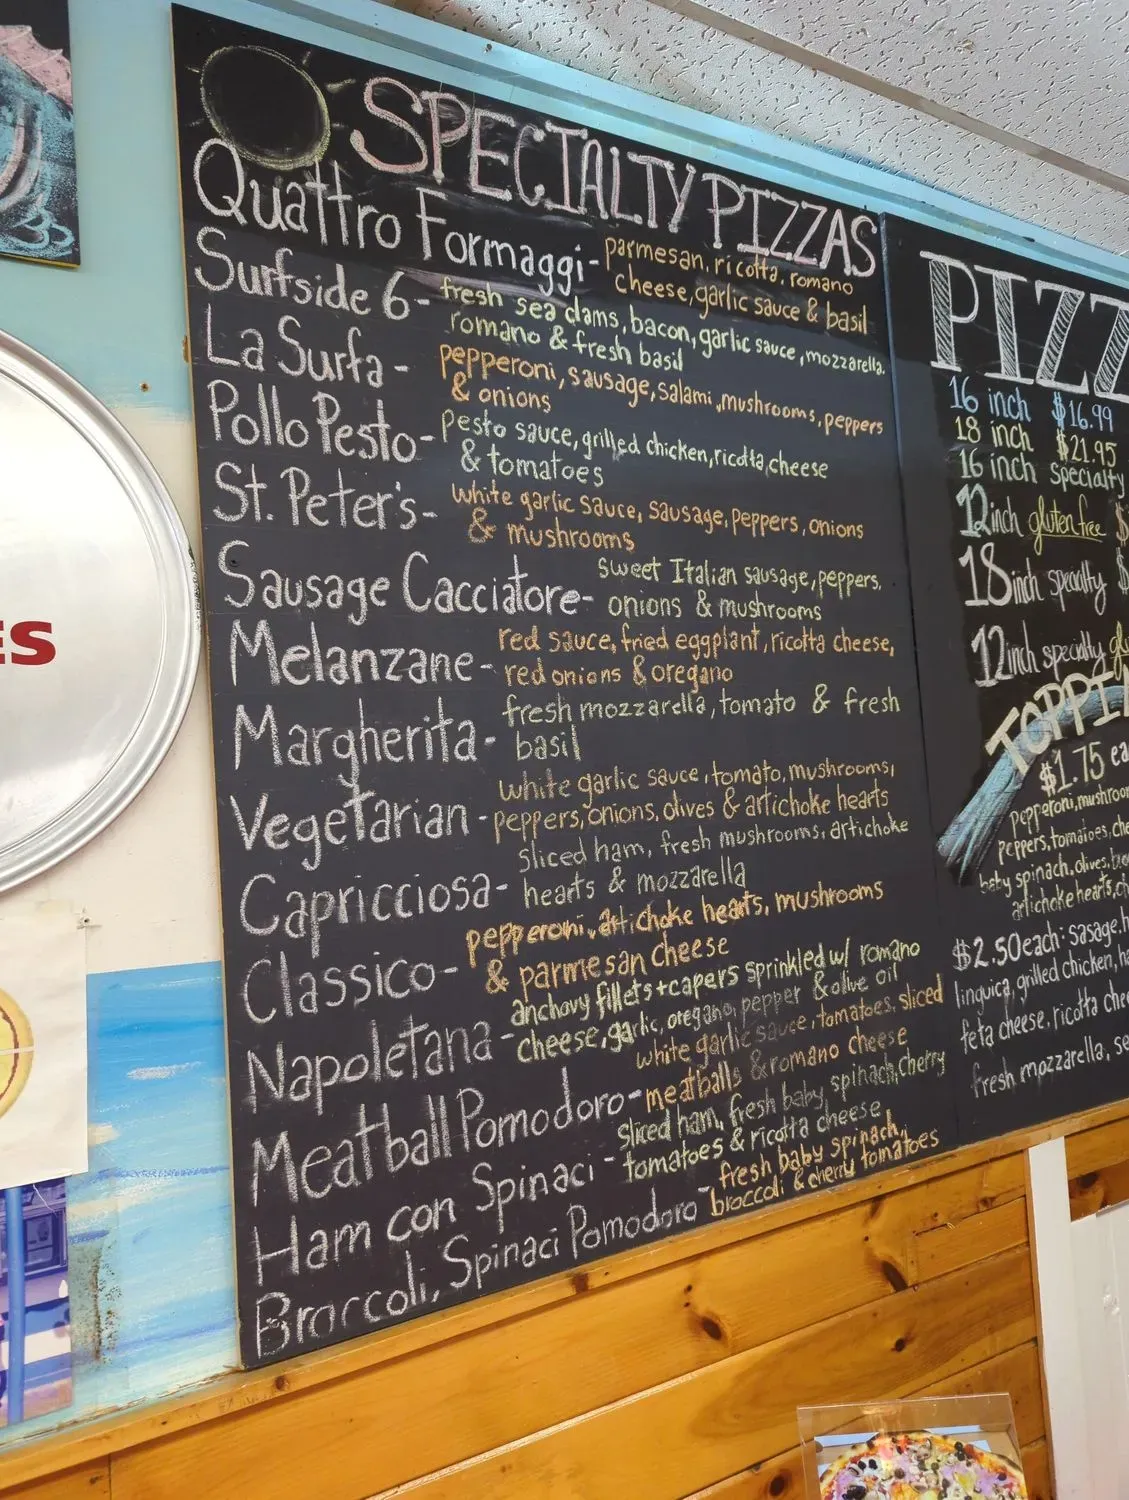 SPECIALTY PIZZAS
Quattro Formaggi- parmesan, ricotta, romano
cheese, garlic sauce & basil
Surfside 6- fresh sea clams, bacon, garlic sauce, mozzarella,
romano & fresh basil
La Surfa- pepperoni, sausage, salami, mushrooms, peppers
& onions
Pollo Pesto- pesto sauce, grilled chicken, ricotta, cheese
& tomatoes
St. Peter's- white garlic sauce, sausage, peppers, onions
& mushrooms
Sausage Cacciatore- sweet Italian sausage, peppers,
onions & mushrooms
Melanzane- red sauce, fried eggplant, ricotta cheese,
red onions & oregano
Margherita- fresh mozzarella, tomato & fresh
basil
Vegetarian- white garlic sauce, tomato, mushrooms,
peppers, onions, olives & artichoke hearts
Capricciosa- sliced ham, fresh mushrooms, artichoke
hearts & mozzarella
Classico- pepperoni, artichoke hearts, mushrooms
& parmesan cheese
Napoletana- anchovy fillets + capers sprinkled w/ romano
cheese, garlic, oregano, pepper & olive oil
Meatball Pomodoro- white garlic sauce, tomatoes, sliced
meatballs & romano cheese
Ham con Spinaci- sliced ham, fresh baby spinach, cherry
tomatoes & ricotta cheese
Broccoli, Spinaci Pomodoro- fresh baby spinach,
broccoli & cherry tomatoes
PIZZ
16 inch $16.99
18 inch $21.95
16 inch specialty
12inch gluten free $
18inch specialty $
12inch specialty
TOPPI
$1.75 ea
pepperoni, mushroo
peppers, tomatoes, che
baby spinach, olives,
artichoke hearts,
$2.50 each: sasage, h
linguica, grilled chicken, ha
feta cheese, ricotta che
fresh mozzarella, se
ES